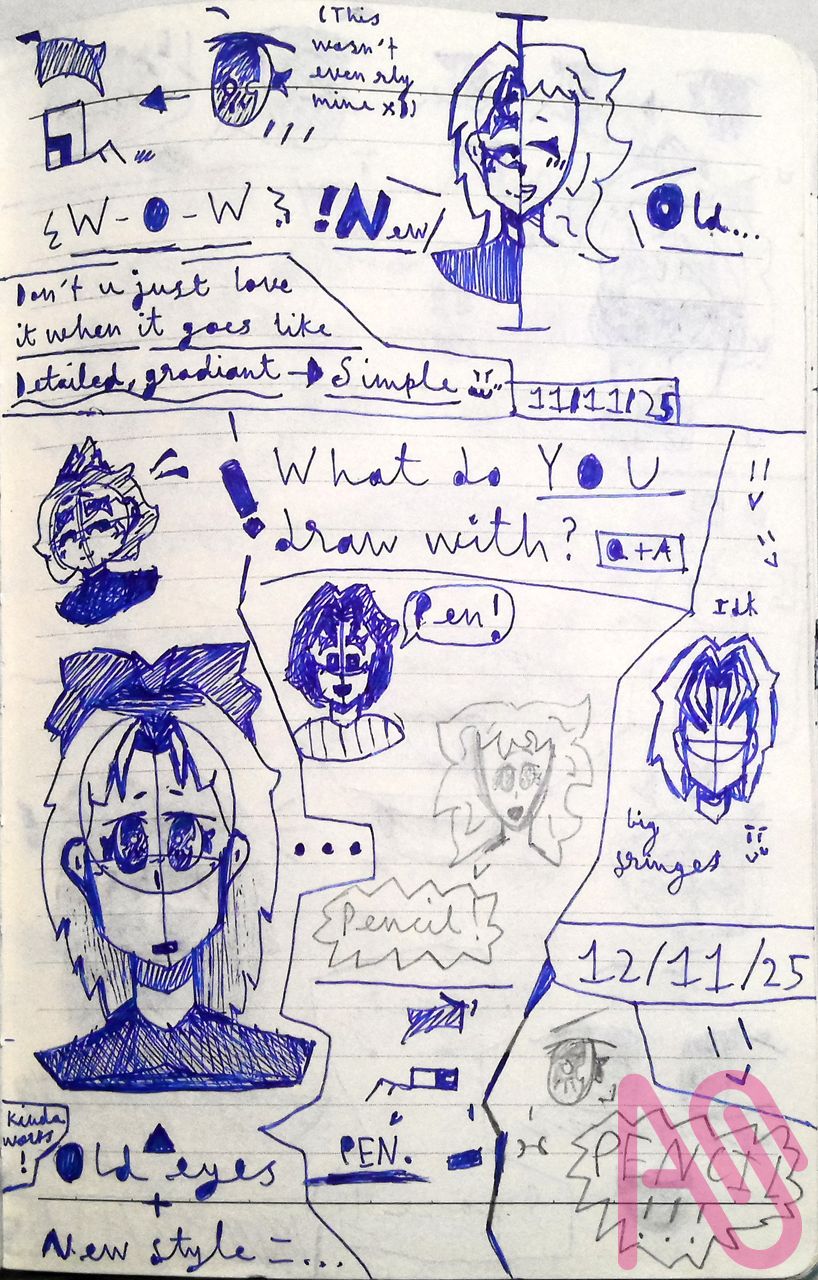 (This
wasn't
even rly
mine xD)
{W-O-W}
!New/
\Old...
Don't u just love
it when it goes like
Detailed, gradiant → Simple
11/11/25
! What do YOU
draw with? Q+A
Pen!
Idk
big
fringes
...
Pencil!
12/11/25
PEN.
PENCIL
!!!
Kinda
works
!
Old eyes
+
New style =...
AS